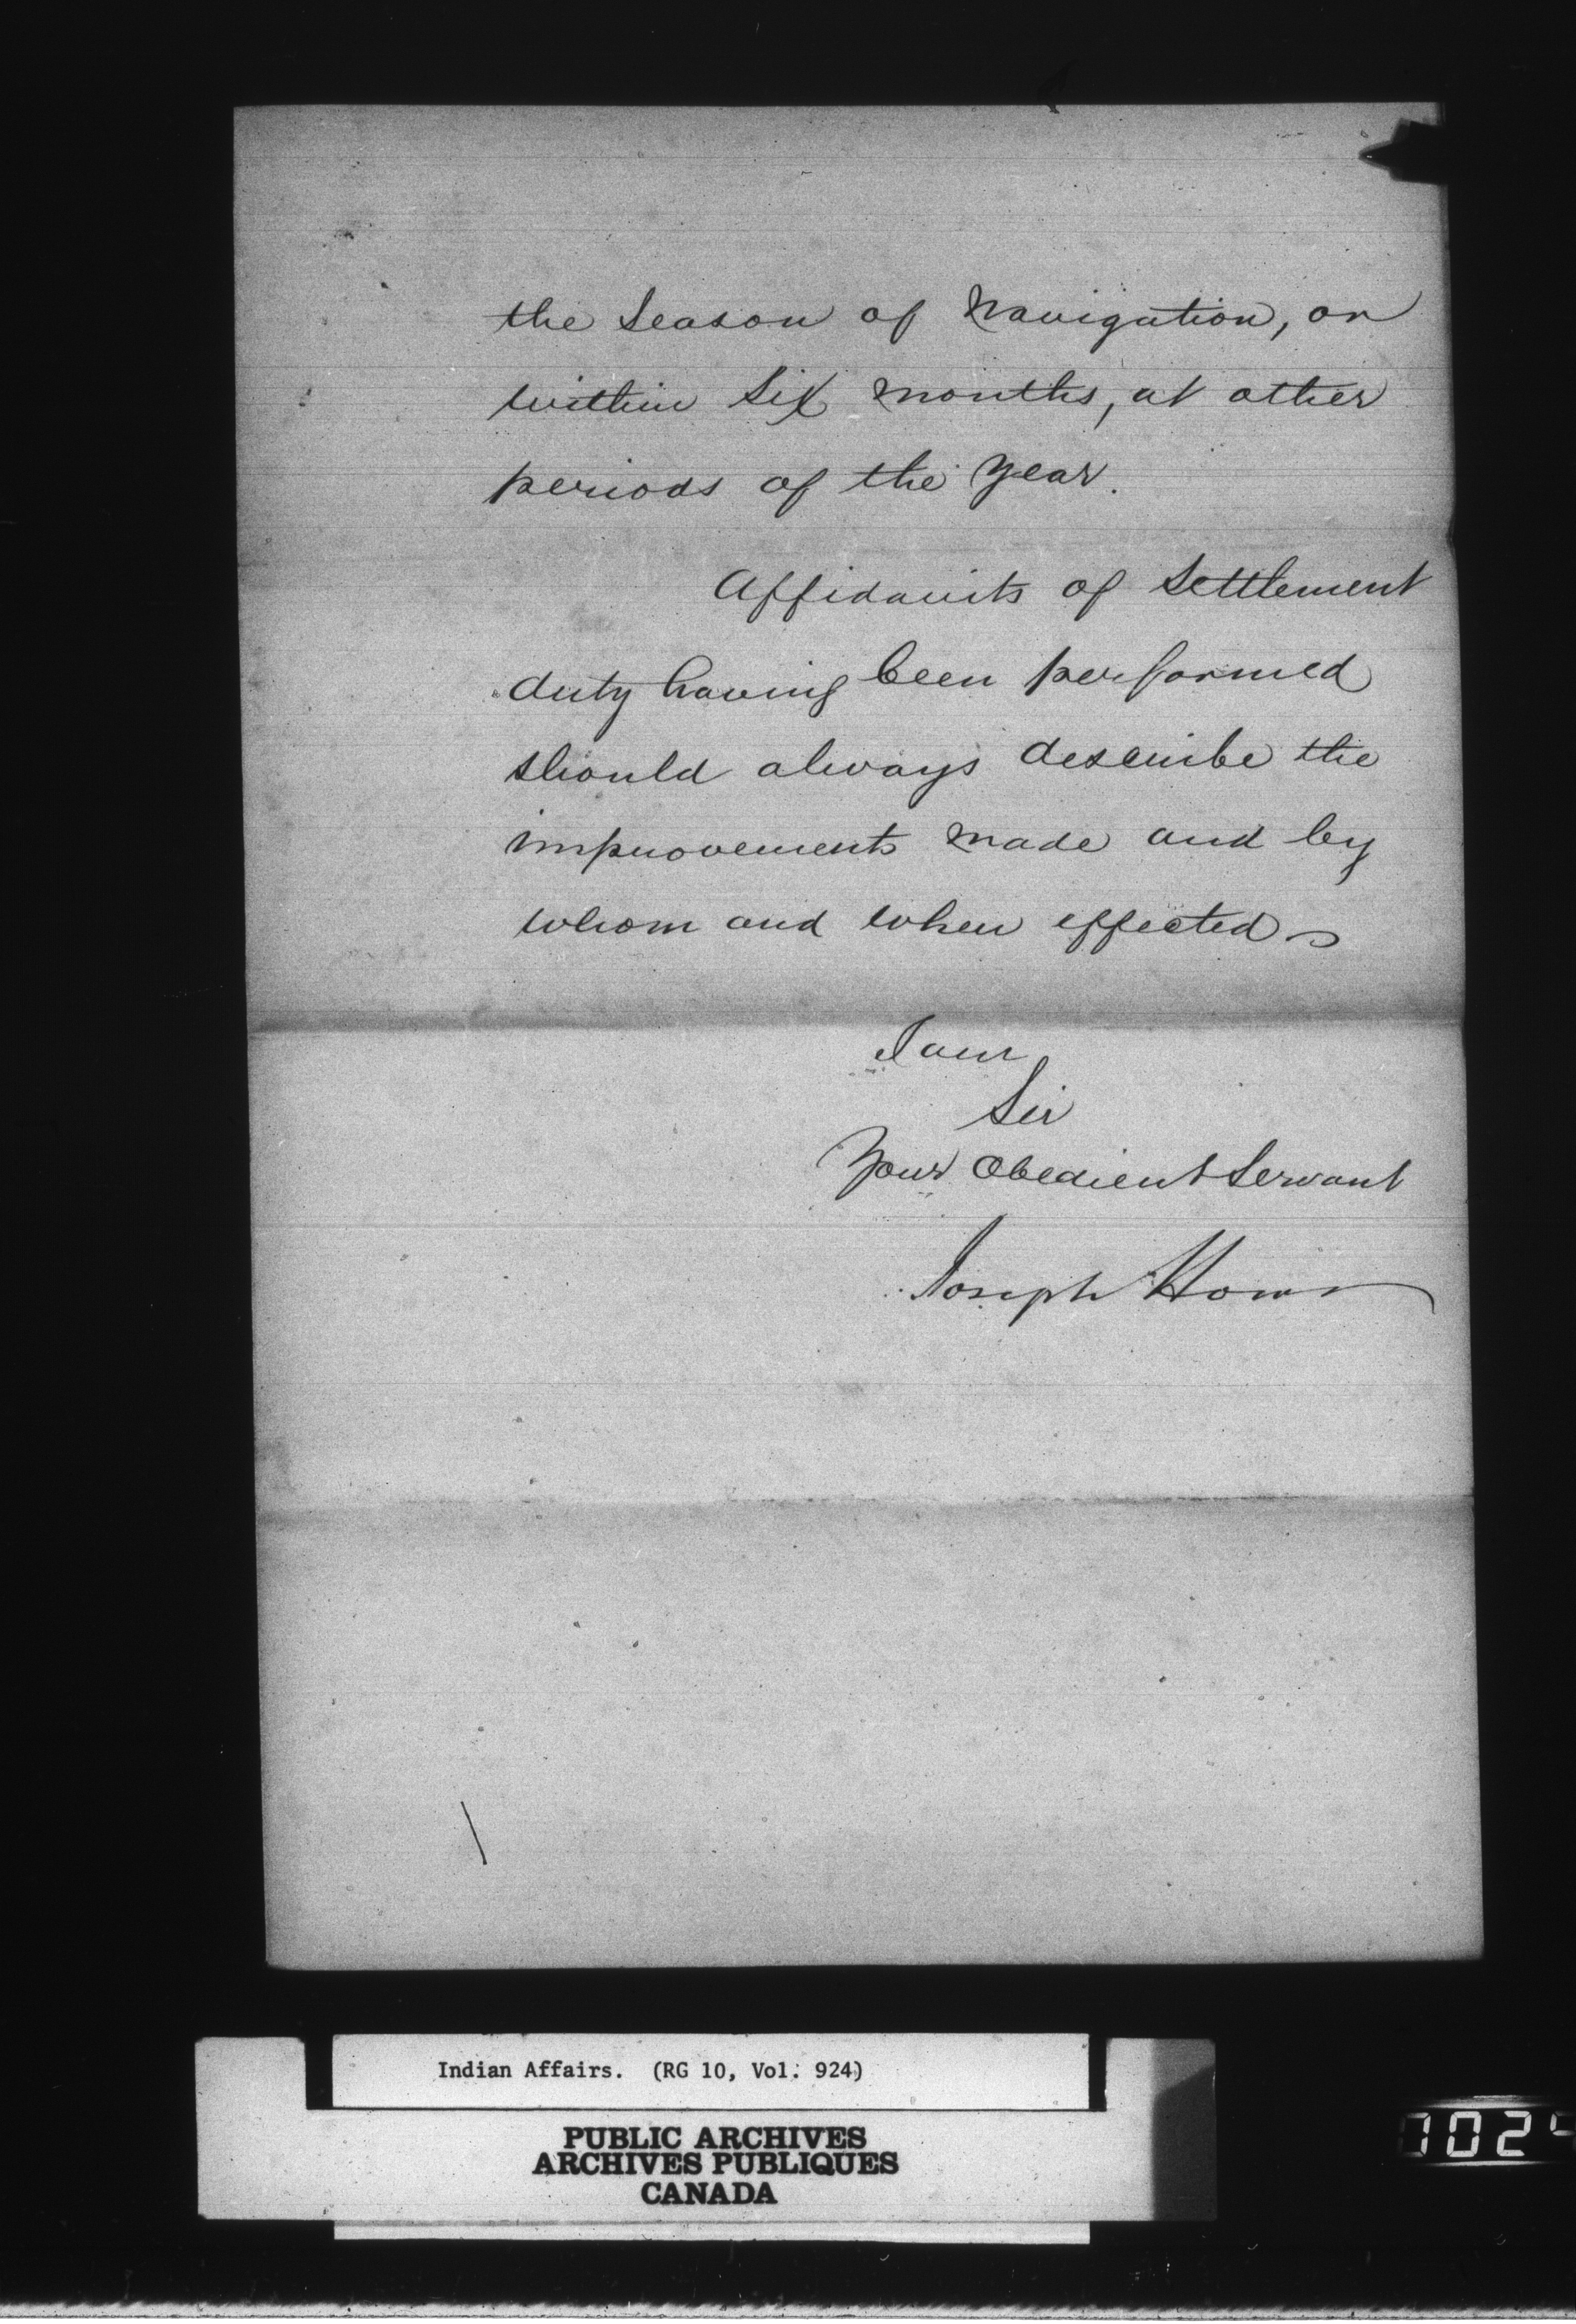 the Season of Navigation, or
within Six months, at other
periods of the Year.
Affidavits of Settlement
duty having been performed
should always describe the
improvements made and by
whom and when effected
I am
Sir
Your Obedient Servant
Joseph Howe
Indian Affairs. (RG 10, Vol. 924)
PUBLIC ARCHIVES
ARCHIVES PUBLIQUES
CANADA